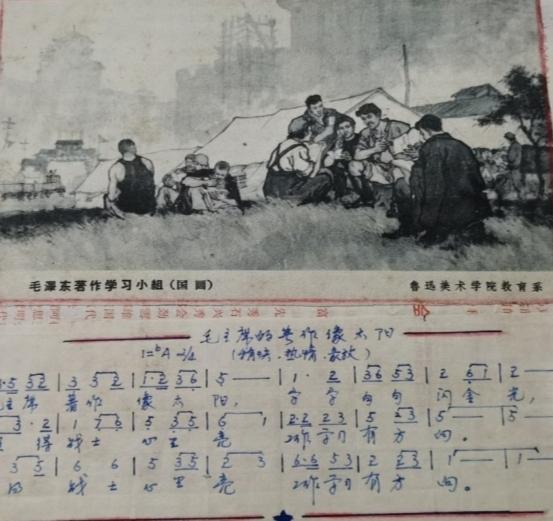 毛澤东著作学习小組（国画）
鲁迅美术学院教育系
毛主席的著作像太阳
1=♭A 2/4
（情绪、热情、豪放）
·5 32 | 3 3 2 | 1·2 36 | 5 — | 1· 2 | 36 53 | 2 61 | 2 —
主席 著作 像太阳， 字字句句 闪金光，
3·2 | 1 76 | 5 35 | 6 1 | 2·2 23 | 5 53 | 5 — | 5 —
得战士 心里 亮 工作学习有方向。
3 5 | 6 6 | 5 35 | 2 3 | 6·6 53 | 2 23 | 1 — | 1 —
战士 心里 亮 工作学习有方向。